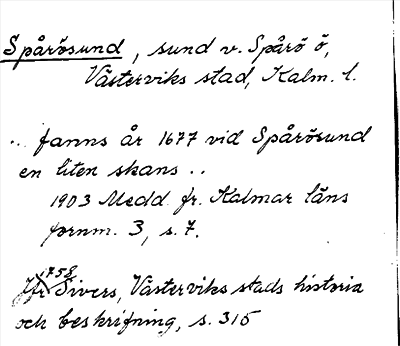 Spårösund, sund v. Spårö ö,
Västerviks stad, Kalm. l.
.. fanns år 1677 vid Spårösund
en liten skans ..
1903 Medd. fr. Kalmar läns
fornm. 3, s. 7.
1758
Jfr Sivers, Västerviks stads historia
och beskrifning, s. 315